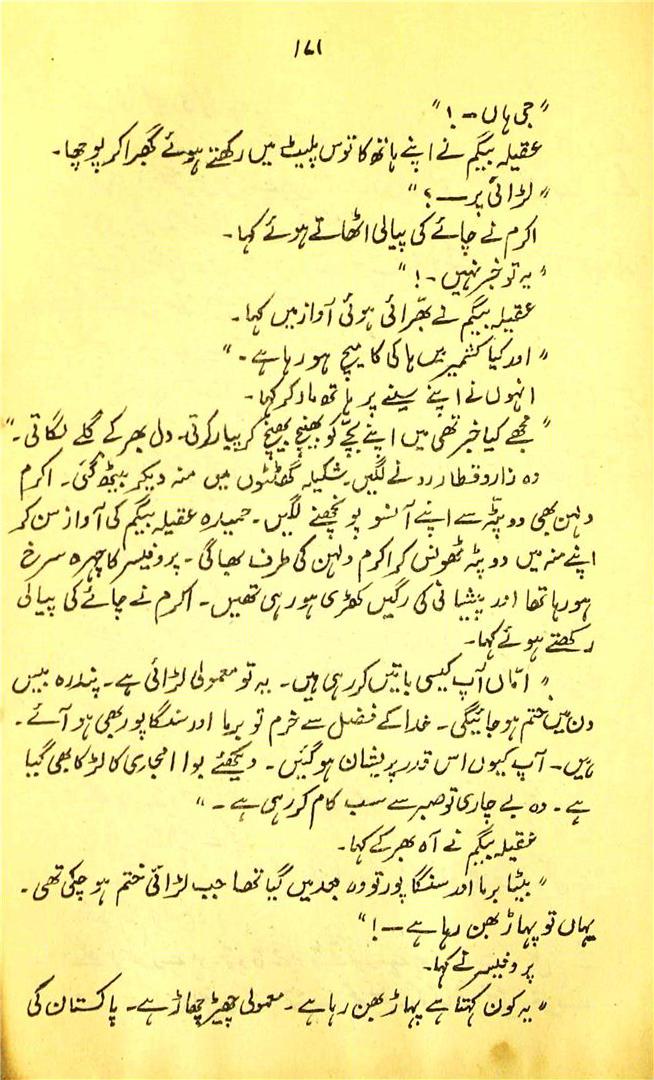 ۱۷۱
"جی ہاں ۔ !"
عقیلہ بیگم نے اپنے ہاتھ کا توس پلیٹ میں رکھتے ہوئے گھبرا کر پوچھا۔
"لڑائی پر ــــ ؟"
اکرم نے چائے کی پیالی اٹھاتے ہوئے کہا۔
"یہ تو خبر نہیں ۔ !"
عقیلہ بیگم نے بھرّائی ہوئی آواز میں کہا۔
"اور کیا کشمیر میں ہاکی کا میچ ہو رہا ہے ۔"
انہوں نے اپنے سینے پر ہاتھ مار کر کہا۔
"مجھے کیا خبر تھی میں اپنے بچّے کو بھینچ بھینچ کر پیار کرتی۔ دل بھر کے گلے لگاتی۔"
وہ زار و قطار رونے لگیں۔ شکیلہ گھٹنوں میں منہ دیکر بیٹھ گئی۔ اکرم
دلہن بھی دوپٹّہ سے اپنے آنسو پونچھنے لگیں۔ حمیدہ عقیلہ بیگم کی آواز سن کر
اپنے منہ میں دوپٹہ ٹھونس کر اکرم دلہن کی طرف بھاگی۔ پروفیسر کا چہرہ سرخ
ہو رہا تھا اور پیشانی کی رگیں کھڑی ہو رہی تھیں۔ اکرم نے چائے کی پیالی
رکھتے ہوئے کہا۔
"امّاں آپ کیسی باتیں کر رہی ہیں۔ یہ تو معمولی لڑائی ہے۔ پندرہ بیس
دن میں ختم ہو جائیگی۔ خدا کے فضل سے خرم تو برما اور سنگاپور بھی ہو آئے۔
ہیں۔ آپ کیوں اس قدر پریشان ہو گئیں۔ دیکھئے بوا انجاری کا لڑکا بھی گیا
ہے۔ وہ بے چاری تو صبر سے سب کام کر رہی ہے۔"
عقیلہ بیگم نے آہ بھر کے کہا۔
"بیٹا برما اور سنگاپور تو وہ بعد میں گیا تھا جب لڑائی ختم ہو چکی تھی۔
یہاں تو پہاڑ بھن رہا ہے ــــ !"
پروفیسر نے کہا۔
"یہ کون کہتا ہے پہاڑ بھن رہا ہے۔ معمولی چھیڑ چھاڑ ہے۔ پاکستان کی